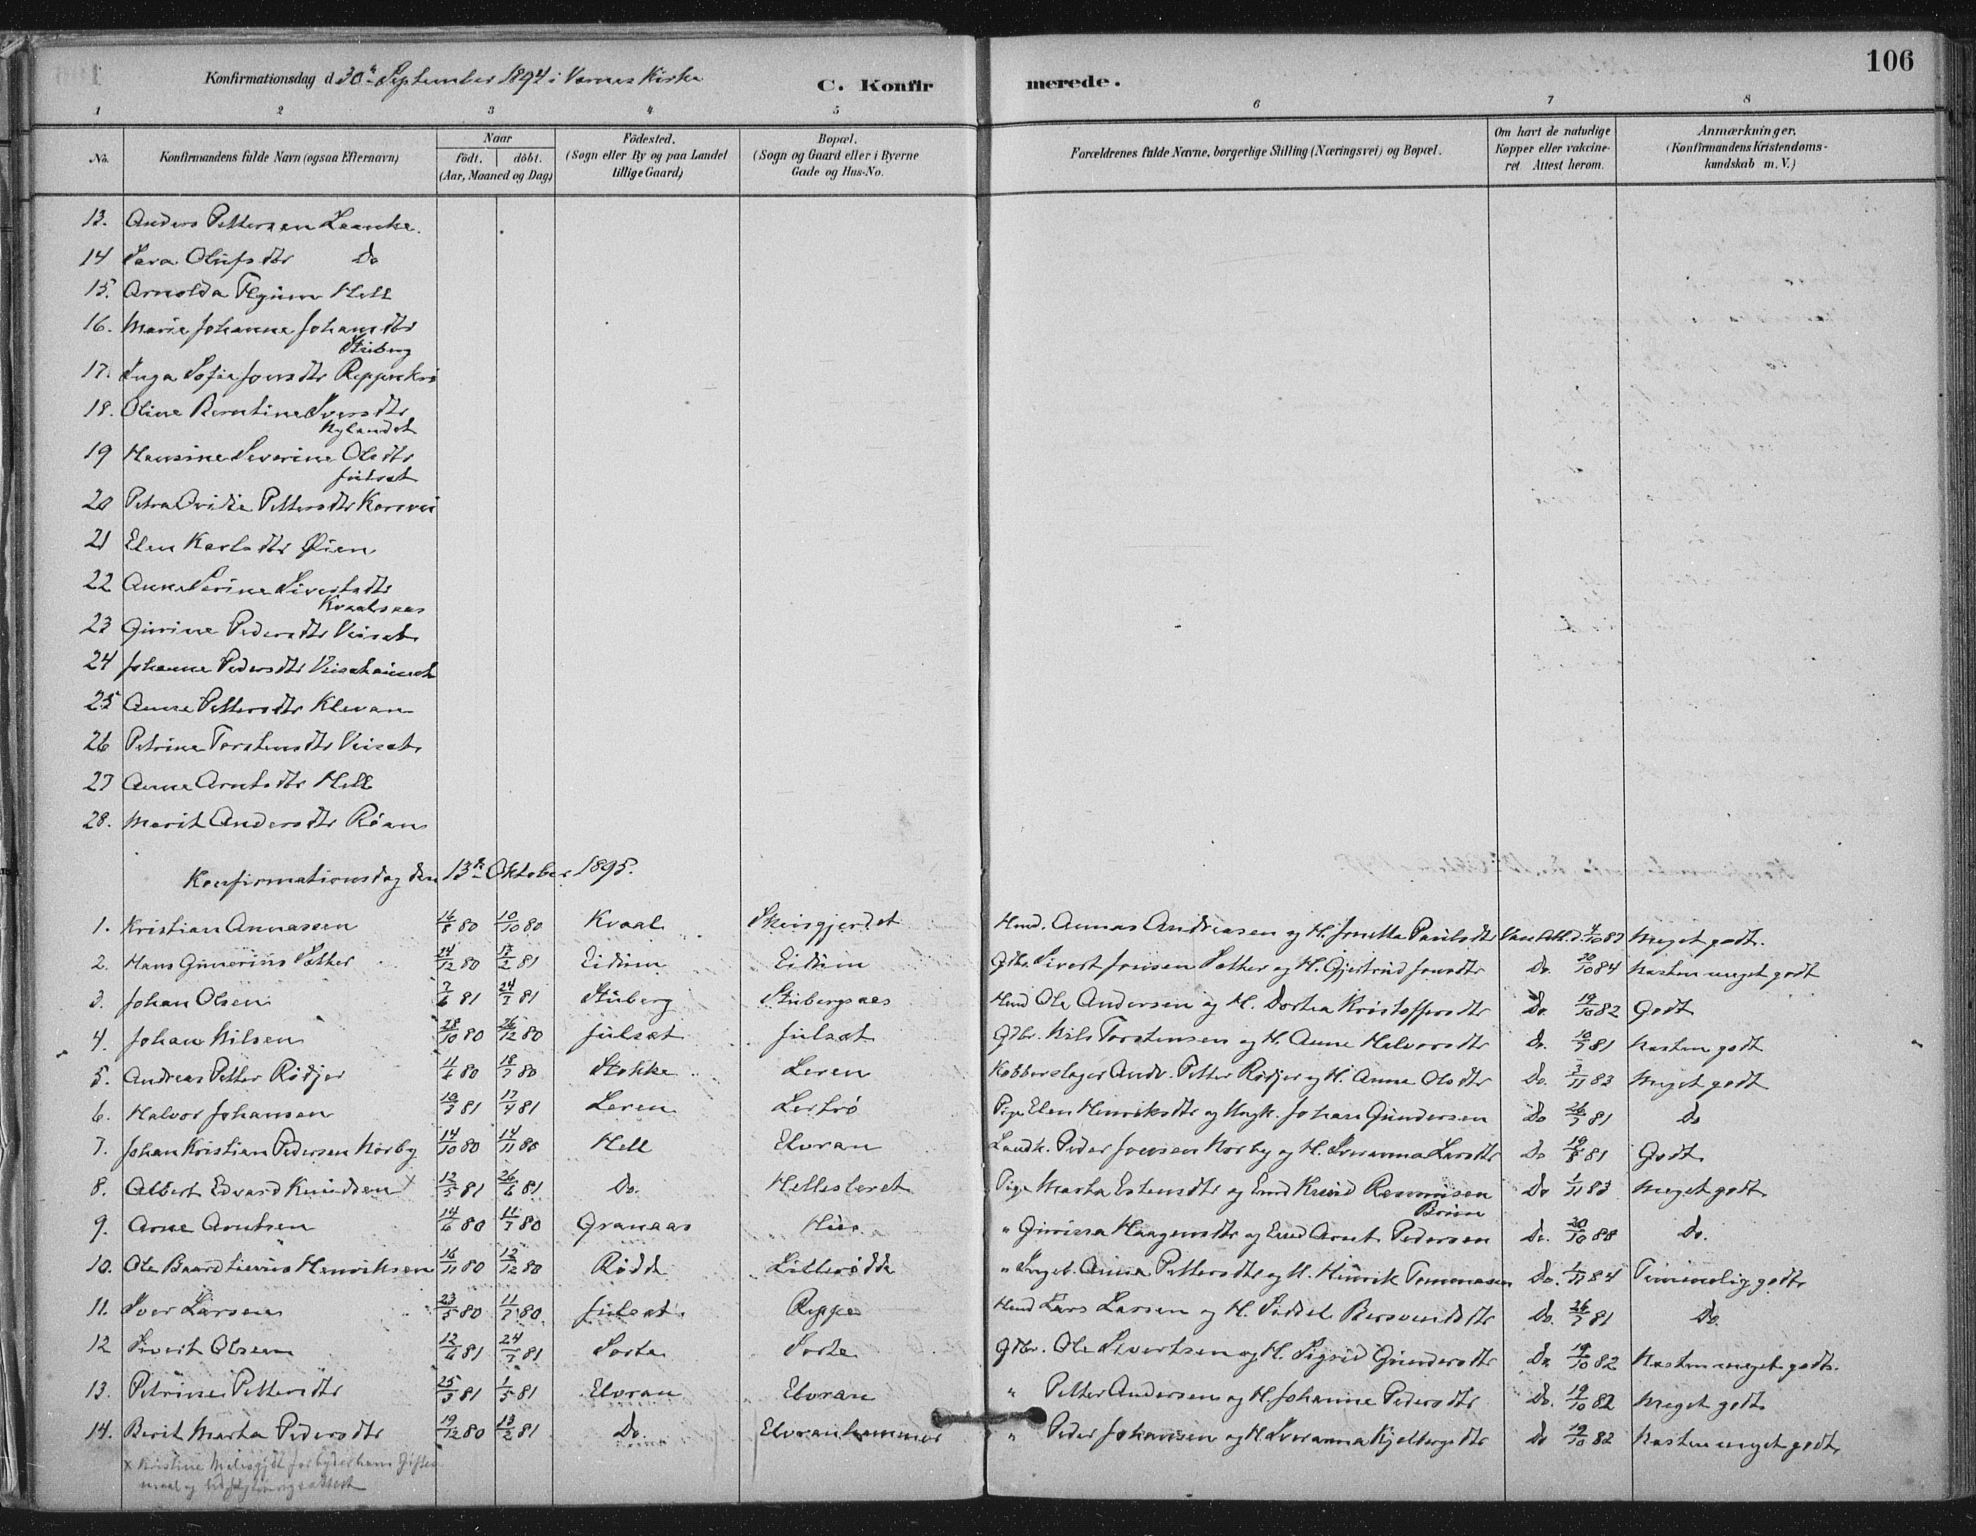 106
Konfirmationsdag d. 30te September 1894 i Værnes Kirke
C. Konfirmerede.
1 2 3 4 5 6 7 8
No.
Konfirmandens fulde Navn (ogsaa Efternavn)
Naar
födt. döbt.
(Aar, Maaned og Dag)
Födested.
(Sogn eller By og paa Landet
tillige Gaard)
Bopæl.
(Sogn og Gaard eller i Byerne
Gade og Hus-No.
Forældrenes fulde Navne, borgerlige Stilling (Næringsvei) og Bopæl.
Om havt de naturlige
Kopper eller vakcine-
ret. Attest herom.
Anmærkninger.
(Konfirmandens Kristendoms-
kundskab m. V.)
13. Anders Pettersen Laanke.
14 Sara Olufsdtr Do
15. Arnolda Flygum Hell
16. Marie Johanna Johansdtr
Stuberg
17. Inga Sofie Jonsdtr Reppeskrs
18. Oline Berntine Iversdtr
Nylandet
19 Hansine Severine Olsdtr
Julset
20 Petra Ovidie Pettersdtr Korsvei
21 Elen Karlsdtr Øien
22 Anne Serine Sivertsdtr
Kvaalsaas
23 Gurine Pedersdtr Veiset
24 Johanne Pedersdtr
25 Anne Pettersdtr Klevan
26 Petrine Torstensdtr Veiset
27 Anne Arntsdtr Hell
28. Marit Andersdtr Röan
Konfirmationsdag den 13de Oktober 1895.
1. Kristian Annassen 16/8 80 10/10 80 Kvaal Skeisgjerdet Husmd. Annas Andreasen og H. Jonetta Paulsdtr Vacc.Att. d. 4/10 87 Meget godt.
2. Hans Gunerius Sæther 14/12 80 13/2 81 Eidum Eidum Gbr. Sivert Jonsen Sæther og H. Gjertrud Jonsdtr Do. 30/10 84 Næsten meget godt
3. Johan Olsen 7/6 81 24/7 81 Stuberg Stubergsaas Husmd Ole Andersen og H. Dortea Kristoffersdtr Do. 19/10 82 Godt
4. Johan Nilsen 28/10 80 26/12 80 Julset Julset Gbr. Nils Torstensen og H. Anne Halvorsdtr Do. 10/7 81 Næsten godt
5. Andreas Petter Rödjer 11/6 80 18/7 80 Stokke Leren Kobberslager Andr. Petter Rödjer og H. Anne Olsdtr Do. 3/11 83 Meget godt
6. Halvor Johansen 10/3 81 17/4 81 Leren Lerbrö Pige Elen Henriksdtr og Ungk. Johan Gundersen Do 26/7 81 Do
7. Johan Kristian Pedersen Norby 14/10 80 14/11 80 Hell Elvran Landh. Peder Jonsen Norby og H. Sveranna Larsdtr Do 19/8 81 Godt
8. Albert Edvard Knudsen x 12/5 81 26/6 81 Do. Hellesteret Pige Marta Estensdtr og Emd Knud Rasmusen Do 1/11 83 Meget godt
9. Arne Arntsen 14/6 80 11/7 80 Granaas Hell " Gurissa Haagensdtr og Emd Arnt Pedersen Do. 20/10 88 Do.
10. Ole Baard Livius Henriksen 16/11 80 12/12 80 Rödde Lillerödde " Anna Pettersdtr og U. Henrik Tommasen Do. 1/11 84 Temmelig godt
11. Iver Larsen 23/5 80 11/7 80 Julset Reppe Husmd Lars Larsen og H. Siddel Bersvendsdtr Do. 26/7 81 Do.
12 Sivert Olsen 12/6 81 24/7 81 Sorte Sorte Gbr. Ole Sivertsen og H. Sigrid Gundersdtr Do. 19/10 82 Næsten meget godt.
13. Petrine Pettersdtr 25/3 81 1/5 81 Elvran Elvran " Petter Andersen og H. Johanne Pedersdtr Do. 19/10 82 Meget godt
14. Berit Marta Pedersdtr 19/12 80 13/2 81 Do. Elvranhammer " Peder Johansen og H. Sveranna Kjelbergsdtr Do 19/10 82 Næsten meget godt
x Kristine forbyder hans Gifter-
maal og